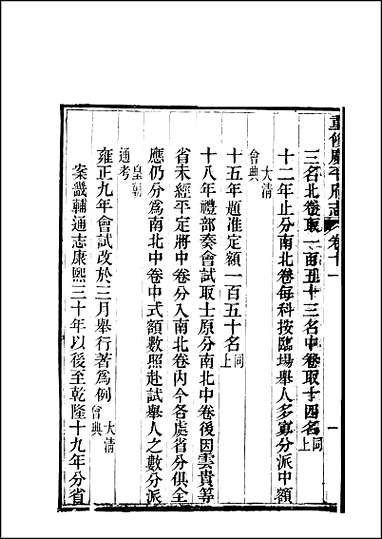 重修廣平府志 卷十一 一
三名北卷取一百五十三名中卷取十四名同上
十二年止分南北卷每科按臨場舉人多寡分派中額
大清會典
十五年題准定額一百五十名同上
十八年禮部奏會試取士原分南北中卷後因雲貴等
省未經平定將中卷分入南北卷內今各處省分俱全
應仍分為南北中卷中式額數照赴試舉人之數分派
皇朝通考
雍正九年會試改於三月舉行著為例大清會典
案畿輔通志康熙三十年以後至乾隆十九年分省